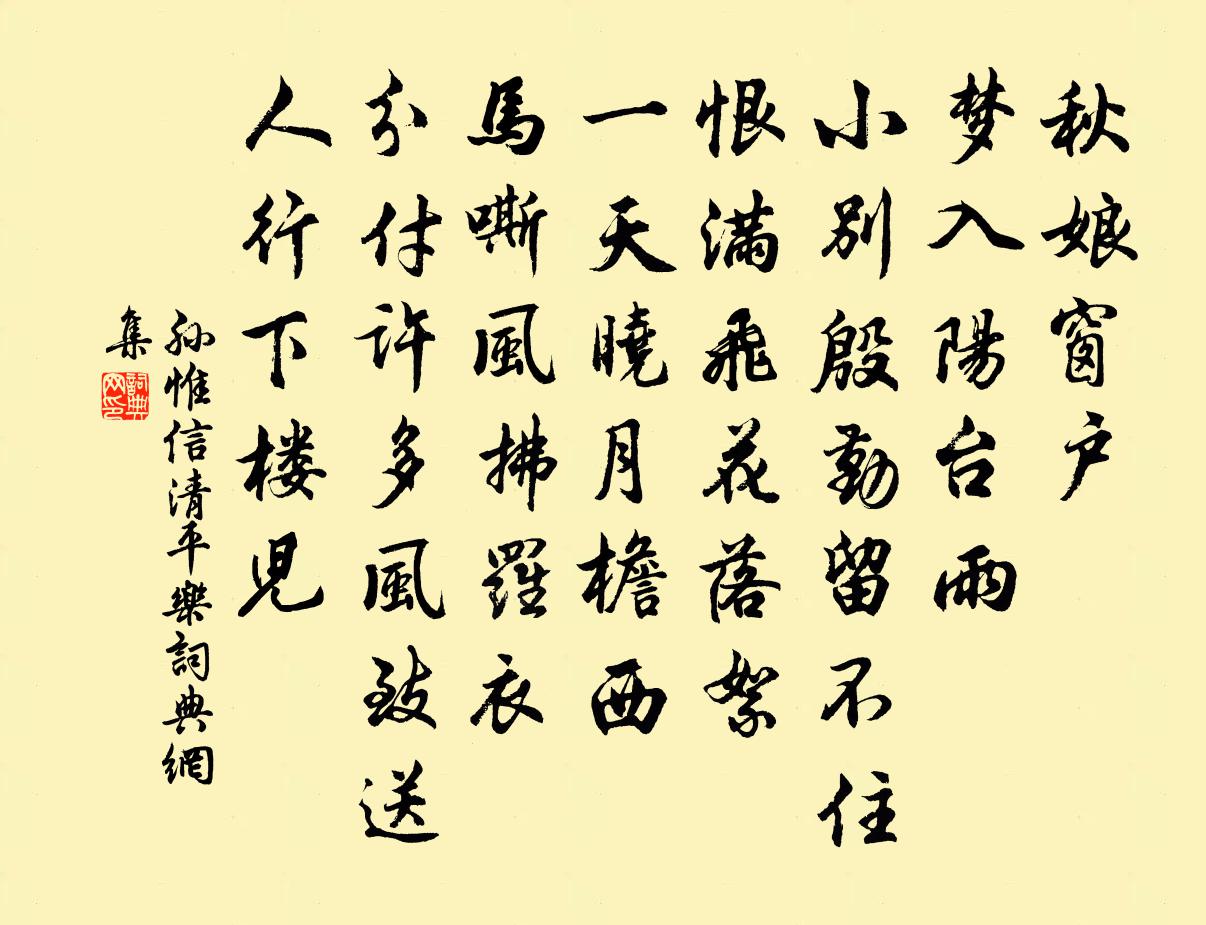 秋娘窗户
梦入陽台雨
小别殷勤留不住
恨滿飛花落絮
一天曉月檐西
馬嘶風拂羅衣
分付许多風致送
人行下楼儿
孙惟信清平樂詞典網
集
詞典
网印